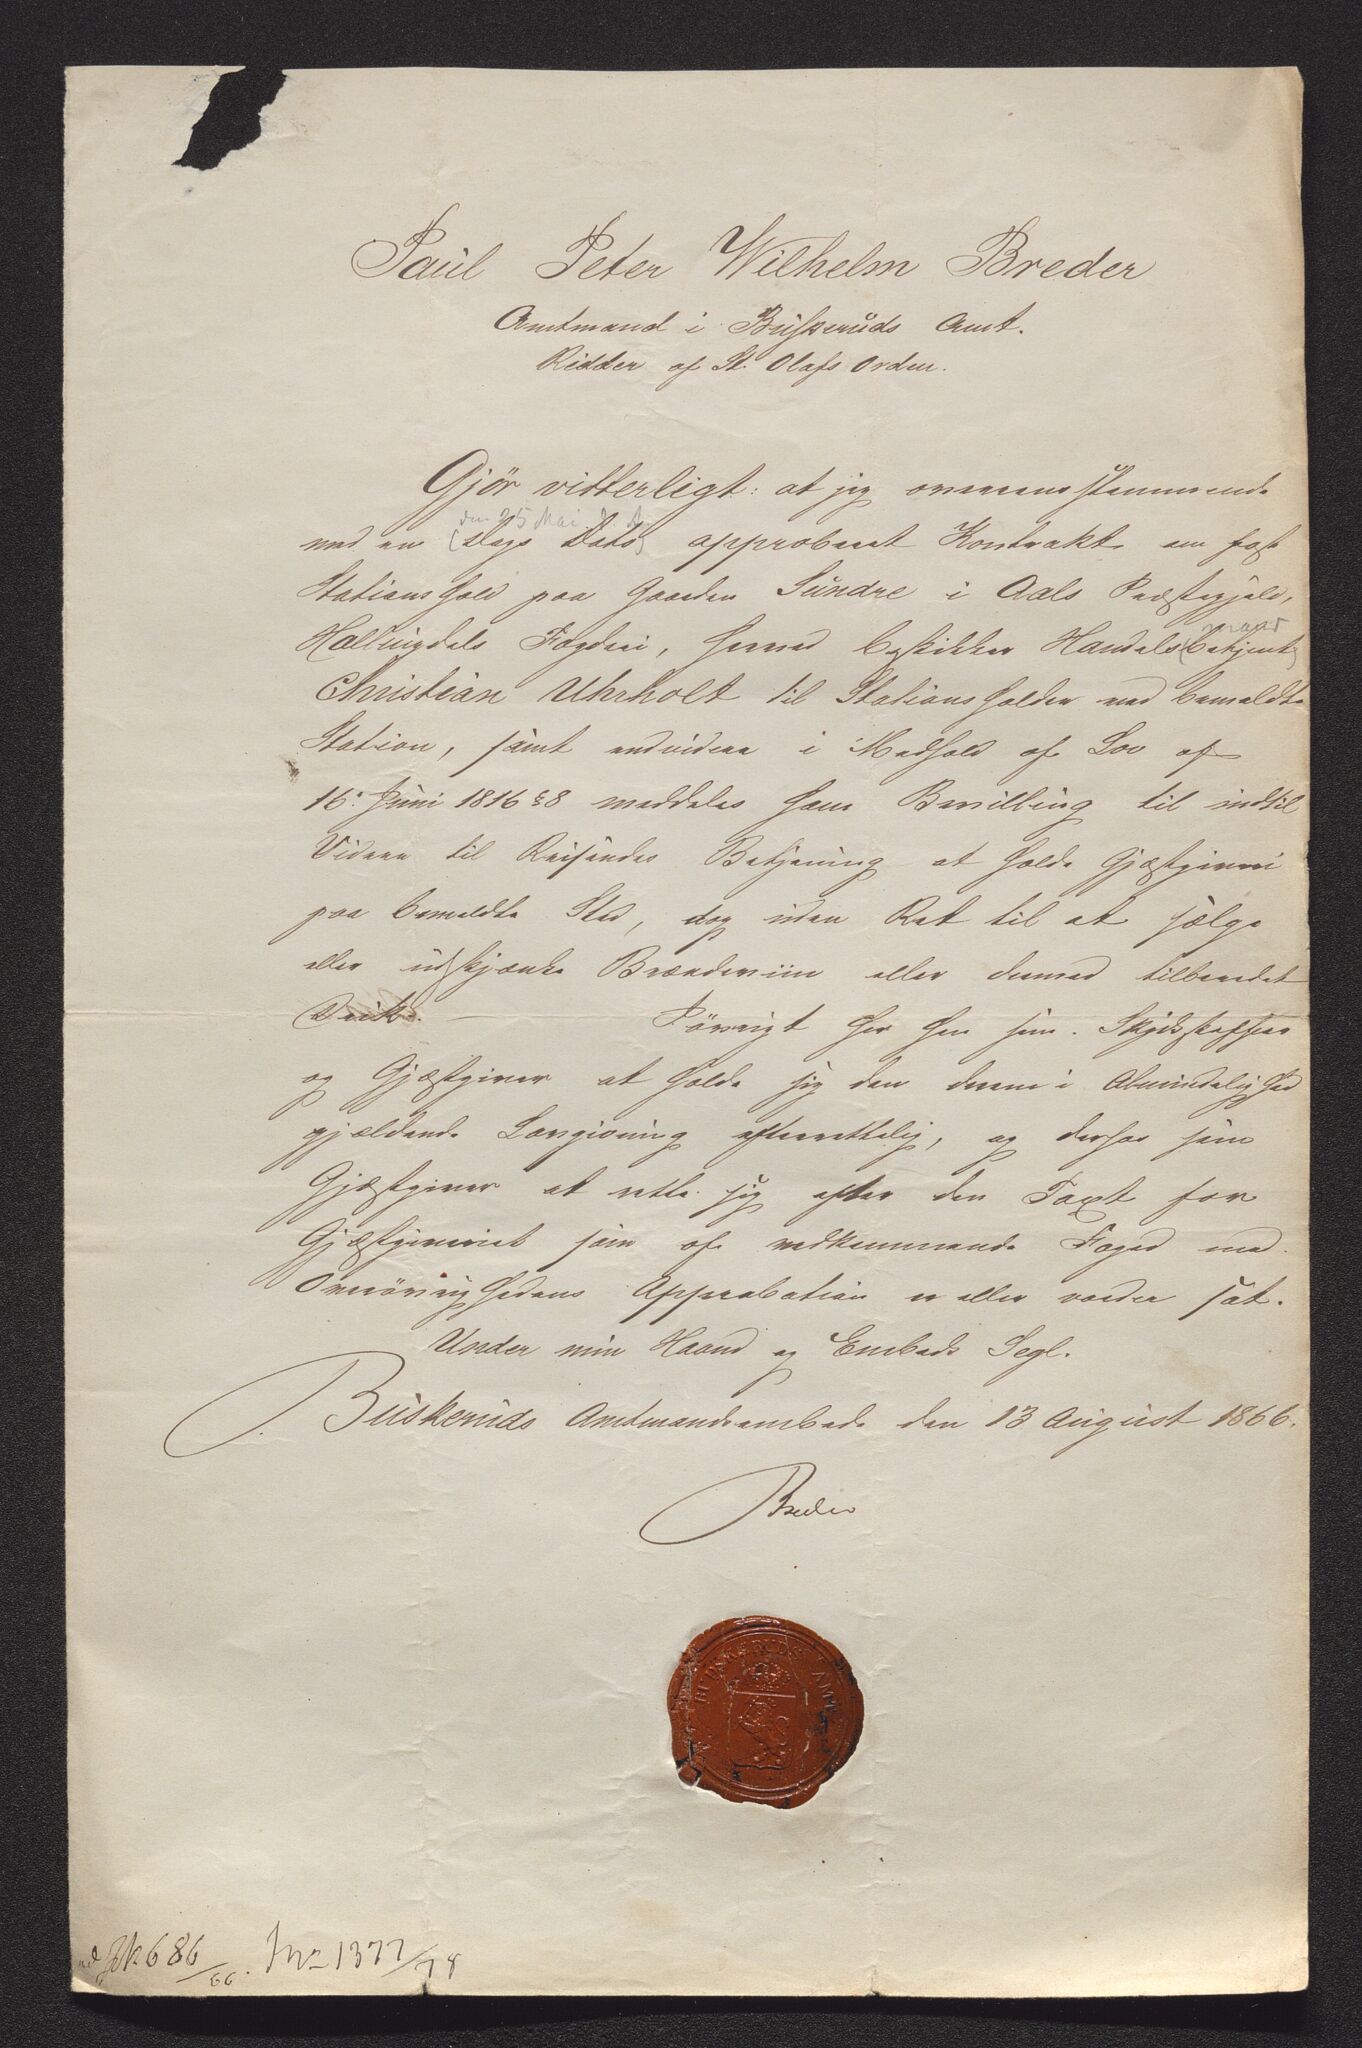 Paul Peter Wilhelm Breder
Amtmand i Buskeruds Amt.
Ridder af St. Olafs Orden.
Gjör vitterligt: at jeg overensstemmende
den 25 Mai d. A.
med en (Dags Dato) approberet Kontrakt om fast
Stationshold paa Gaarden Sundre i Aals Præstegjeld,
Hallingdals Fogderi, herved beskikker Handels(betjent)
Christian Uhrholt til Stationsholder ved bemeldte
Station, samt endvidere i Medhold af Lov af
16. Juni 1816 § 8 meddeles ham Bevilling til indtil
Videre til Reisendes Betjening at holde Gjæstgiveri
paa bemeldte Sted, dog uden Ret til at sælge
eller udskjænke Brændeviin eller dermed tilberedet
Drik. — Iövrigt har han som Skydsskaffer
og Gjæstgiver at holde sig den derom i Almindelighed
gjældende Lovgivning efterrettelig, og derhos som
Gjæstgiver at rette sig efter den Taxt for
Gjæstgiveriet som af vedkommende Foged med
Overövrighedens Approbation er eller vorder sat.
Under min Haand og Embeds Segl.
Buskeruds Amtmandsembede den 13 August 1866.
Breder
BUSKERUDS AMT
Jk 686/66. Jnr 1377/78